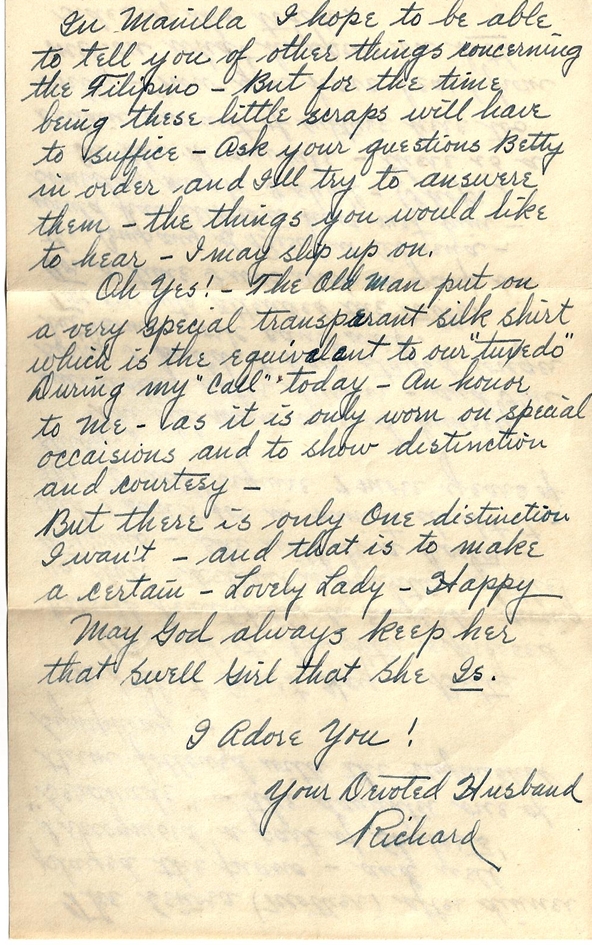 In Manilla I hope to be able
to tell you of other things concerning
the Filipino - But for the time
being these little scraps will have
to suffice - Ask your questions Betty
in order and I'll try to answere
them - the things you would like
to hear - I may slip up on.
Oh Yes! - The Old Man put on
a very special transparant silk shirt
which is the equivalant to our "tuxedo"
During my "Call" today - An honor
to me - as it is only worn on special
occaisions and to show distinction
and courtesy -
But there is only One distinction
I wan't - and that is to make
a certain - Lovely Lady - Happy
May God always keep her
that swell Girl that she Is.
I Adore You!
Your Devoted Husband
Richard